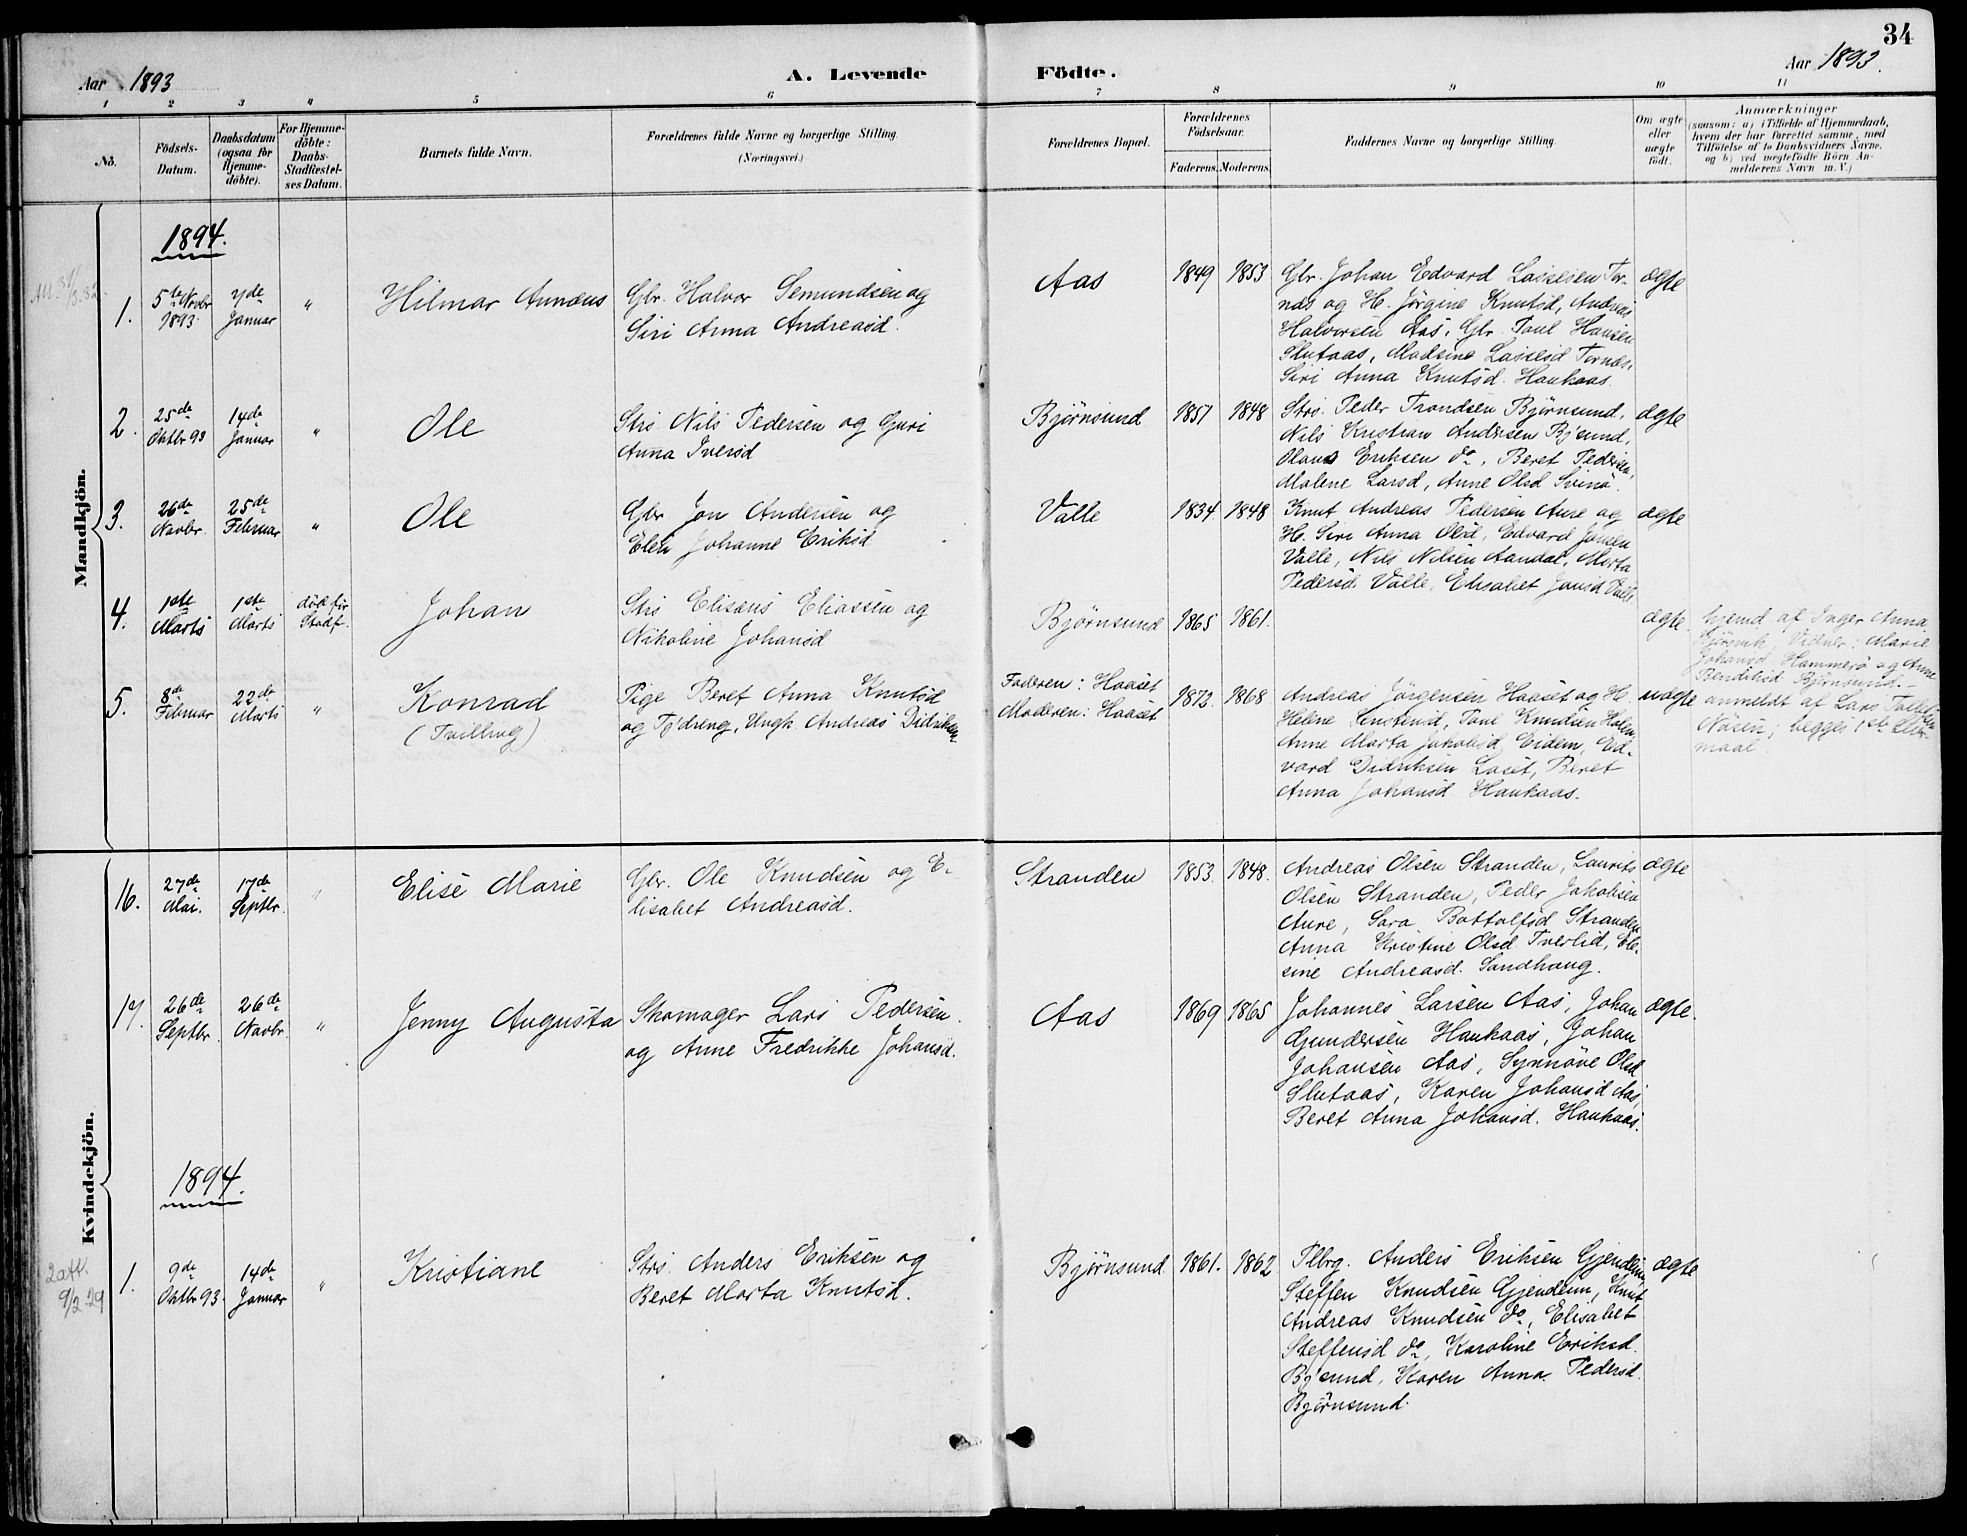 34
Aar 1893
A. Levende
Födte.
Aar 1893.
1 2 3 4 5 6 7 8 9 10 11
No.
Födsels-
Datum.
Daabsdatum
(ogsaa for
Hjemme-
döbte).
For Hjemme-
döbte:
Daabs-
Stadfæstel-
ses Datum.
Barnets fulde Navn.
Forældrenes fulde Navne og borgerlige Stilling.
(Næringsvei.)
Forældrenes Bopæl.
Forældrenes
Födselsaar.
Faderens. Moderens.
Faddernes Navne og borgerlige Stilling.
Om ægte
eller
uægte
födt.
Anmærkninger
(saasom: a) i Tilfælde af Hjemmedaab,
hvem der har forrettet samme, med
Tilföielse af to Daabsvidners Navne,
og b) ved uægtefödte Börn An-
melderens Navn m.V.)
Mandkjön.
1894.
1.
5te Novbr
1893.
7de
Januar
"
Hilmar Annæus
Gbr. Halvor Semundsen og
Siri Anna Andreasd.
Aas
1849
1853
Gbr. Johan Edvard Lassesen Tor-
næs og H. Jörgine Knutsd, Andreas
Halvorsen Aas, Gbr. Poul Hansen
Slutaas, Madsine Lassesd Tornæs,
Siri Anna Knutsd. Haukaas.
ægte
2.
25de
Oktbr 93
14de
Januar
"
Ole
Strs Nils Pedersen og Guri
Anna Iversd
Björnsund
1857
1848
Strs. Peder Trondsen Björnsund,
Nils Kristian Andersen Bj'sund,
Olaus Eriksen do, Beret Pedersd,
Malene Larsd, Anne Olsd Svinö.
ægte
3.
26de
Novbr.
25de
Februar
"
Ole
Gbr Jon Andersen og
Elen Johanne Eriksd
Valle
1834
1848
Knut Andreas Pedersen Aure og
H. Siri Anna Olsd, Edvard Jonsen
Valle, Nils Nilsen Aandal, Marta
Pedersd Valle, Elisabet Jonsd Valle
ægte
4.
1ste
Marts
1ste
Marts
död för
Stadf.
Johan
Strs Elisæus Eliassen og
Nikoline Johansd
Björnsund
1865
1861.
ægte.
hjemd. af Inger Anna
Vidner: Marie
Johansd Hammerö og Anne
Bendiksd Björnsund.
5.
8de
Februar
22de
Marts
"
Konrad
(Tvilling)
Pige Beret Anna Knutsd
og Tj'dreng, Ungk. Andreas Didriksen
Faderen: Haaset
Moderen: Haaset
1872.
1868
Andreas Jörgensen Haaset og H
Helene Poul Knudsen Holm,
Anne Marta Jakobsd. Eidem, Ed-
vard Didriksen Laset, Beret
Anna Johansd Haukaas.
uægte
anmeldt af Lars
begges 1ste Leier-
maal.
Kvindekjön.
16.
27de
Mai.
17de
Septbr.
"
Elise Marie
Gbr. Ole Knudsen og E-
lisabet Andreasd.
Stranden
1853.
1848.
Andreas Olsen Stranden, Laurits
Olsen Stranden, Peder Jakobsen
Aure, Sara Bottolfsd Stranden,
Anna Kristine Olsd Tverlid, Ele-
sine Andreasd. Sandhaug.
ægte
17.
26de
Septbr.
26de
Novbr.
"
Jenny Augusta
Skomager Lars Pedersen
og Anne Fredrikke Johansd.
Aas
1869
1865
Johannes Larsen Aas, Johan
Gundersen Haukaas, Johan
Johansen Aas, Synnöve Olsd
Slutaas, Karen Johansd Aas,
Beret Anna Johansd. Haukaas.
ægte.
1894.
2att.
9/2 29
1.
9de
Oktbr 93.
14de
Januar
"
Kristiane
Strs. Anders Eriksen og
Beret Marta Knutsd.
Björnsund
1861.
1862
Plbrg. Anders Eriksen Gjendem,
Steffen Knudsen Gjendem, Knut
Andreas Knudsen do, Elisabet
Steffensd do, Karoline Eriksd.
Bj'sund, Karen Anna Pedersd.
Björnsund.
ægte